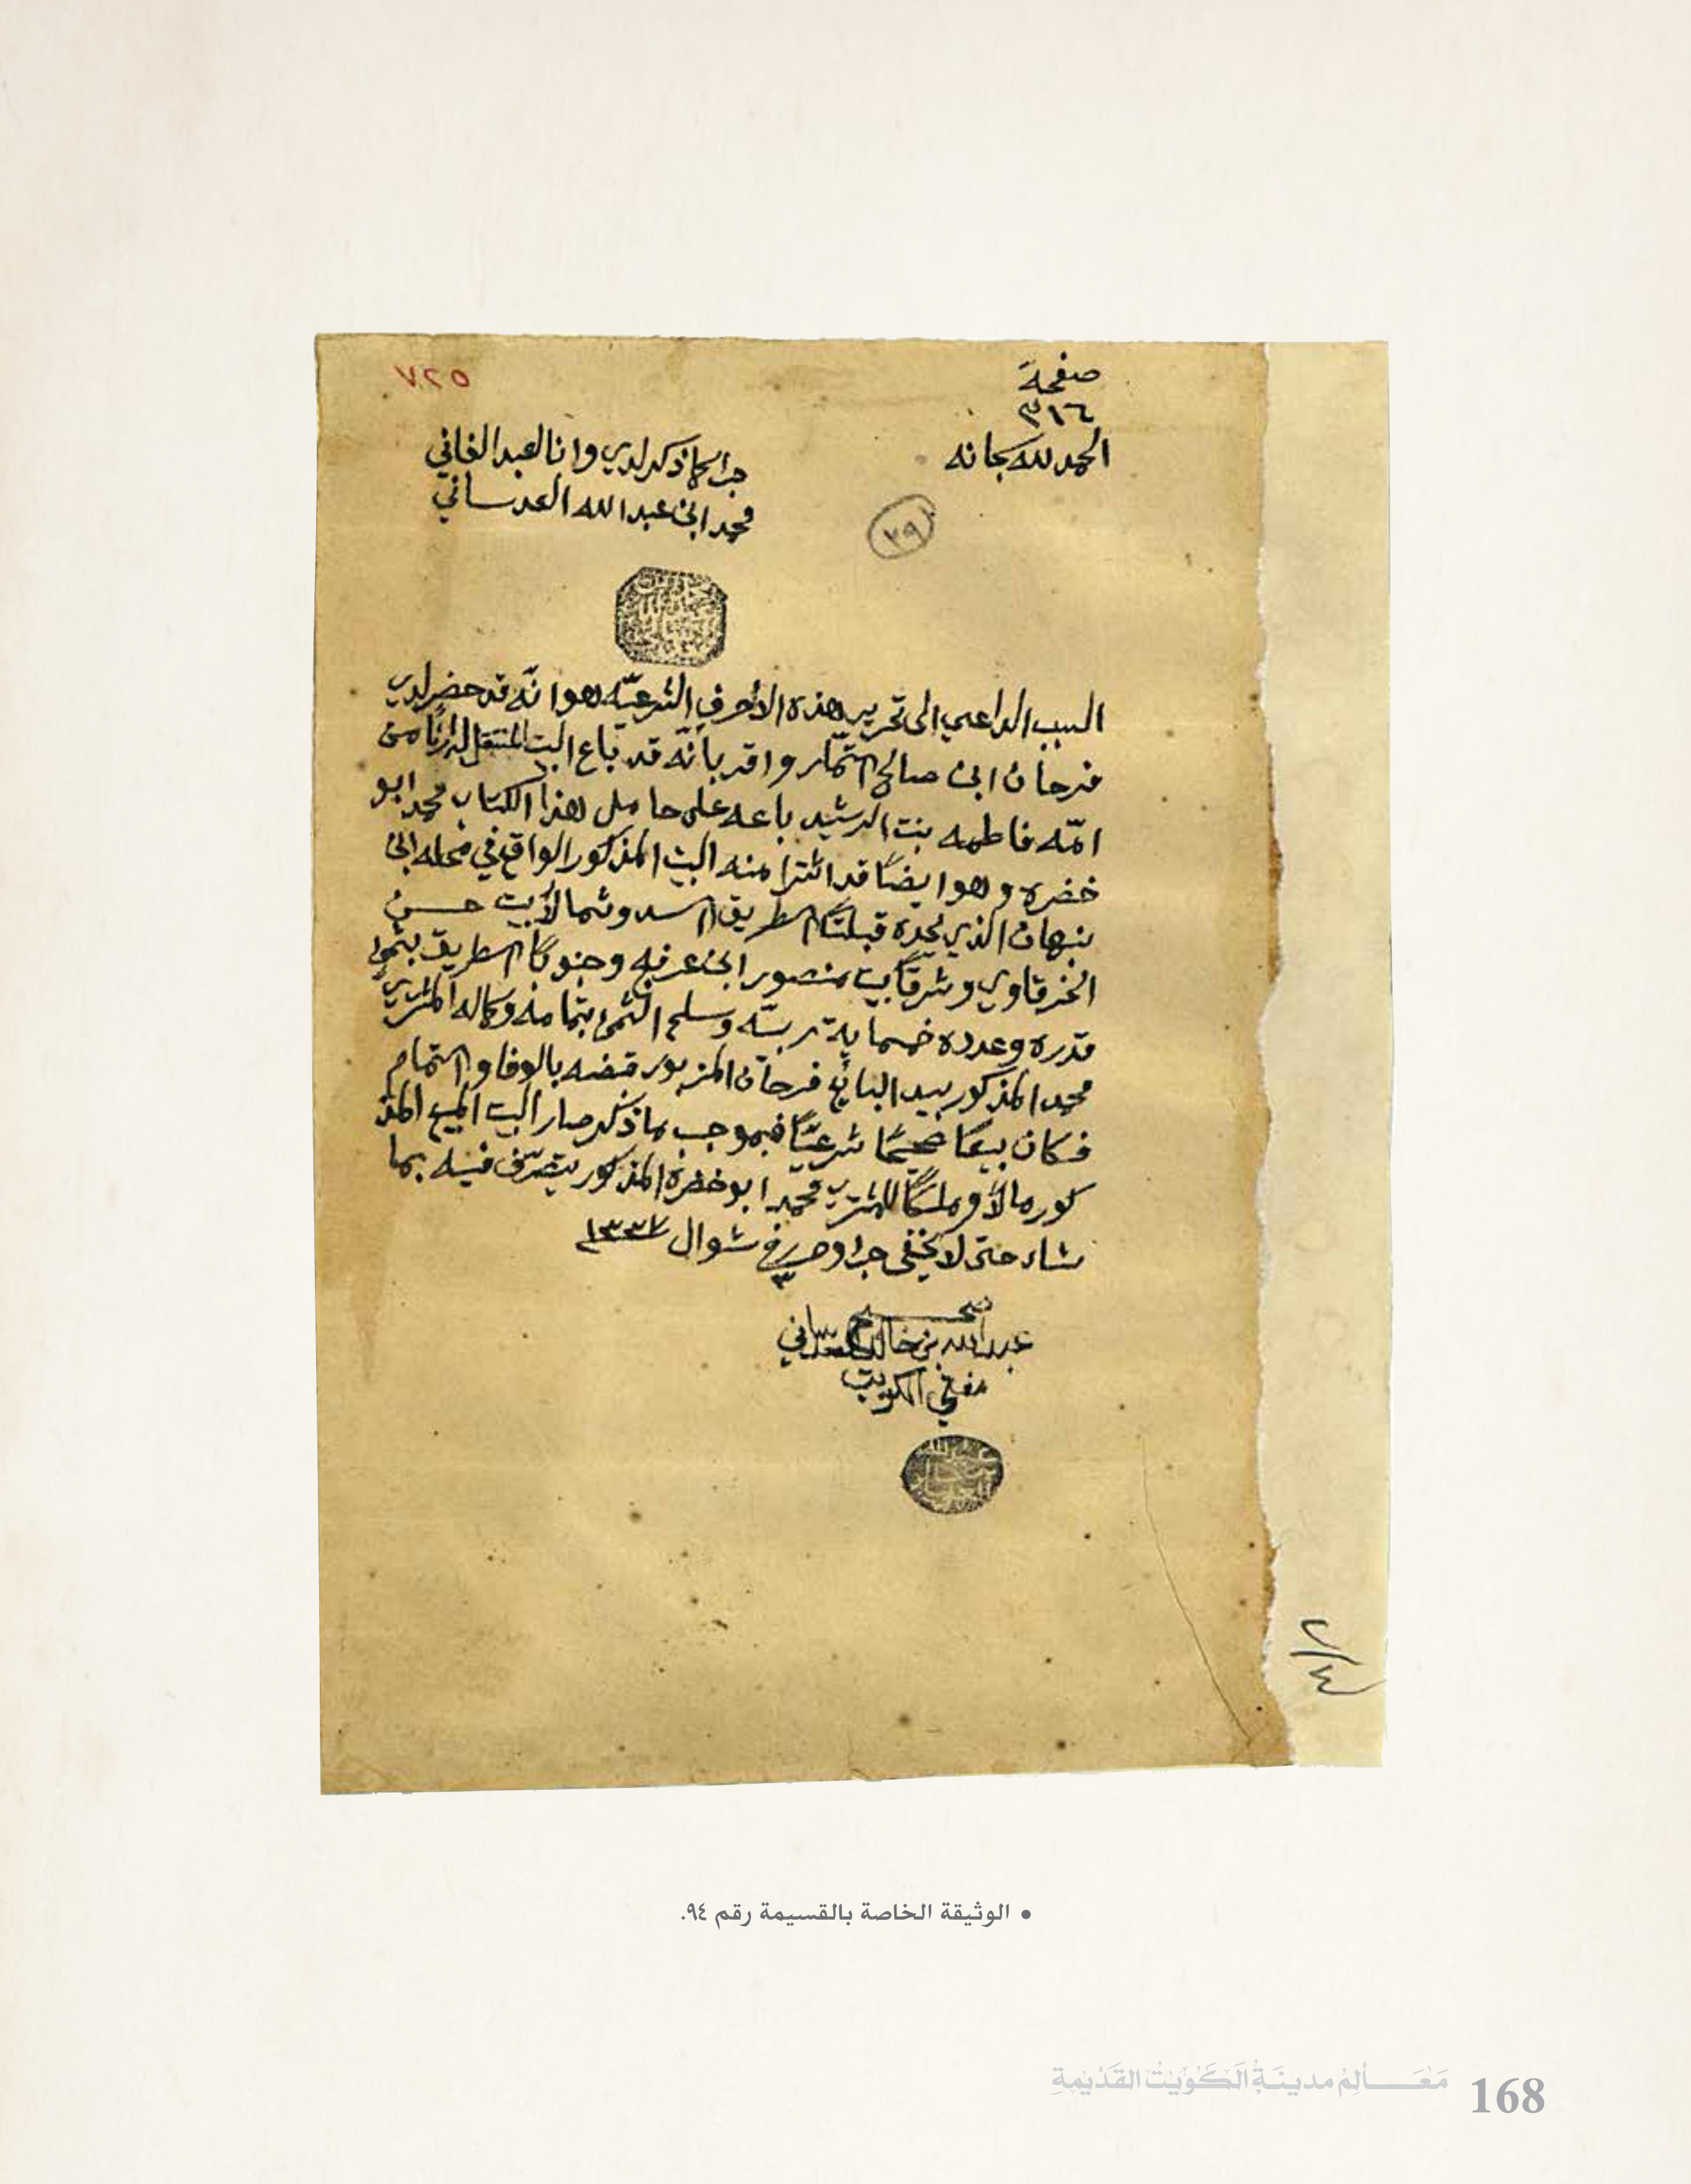 ٧٢٥
صفحة
٣١٦
الحمد لله سبحانه
جرا كما ذكر لدي وانا العبد الفاني
محمد ابن عبدالله العدساني
٢٩
السبب الداعي الى تحرير هذه الأحرف الشرعيّه هو انّه قد حضر لدي
فرحان ابن صالح التمّار واقر بأنّه قد باع البيت المنتقل اليه ارثًا من
امّه فاطمه بنت الرشيد باعه على حامل هذا الكتاب محمد ابو
خضره وهو ايضًا قد اشترا منه البيت المذكور الواقع في محله ابن
بنهان الذي يحده قبلتًا الطريق السد وشمالًا بيت حسن
الخرقاوي وشرقًا بيت منصور ابن عرفج وجنوبًا الطريق بثمن
قدره وعدده خمساية ربيّه وسلم الثمن بتمامه وكماله المشتري
محمد المذكور بيد البائع فرحان المزبور قبضه بالوفا والتمام
فكان بيعًا صحيحًا شرعيًّا فبموجب ما ذكر صار البيت المبيع المذ
كور مالًا وملكًا للمشتري محمد ابو خضره المذكور يتصرّف فيه بما
شاء حتى لا يخفى جرا وحرر في ٣ شوال ١٣٣٧
صحيح
عبدالله بن خالد العدساني
مفتي الكويت
• الوثيقة الخاصة بالقسيمة رقم ٩٤.
مَعَالِمُ مدينَةِ الكُوَيْت القَدْيمةِ 168